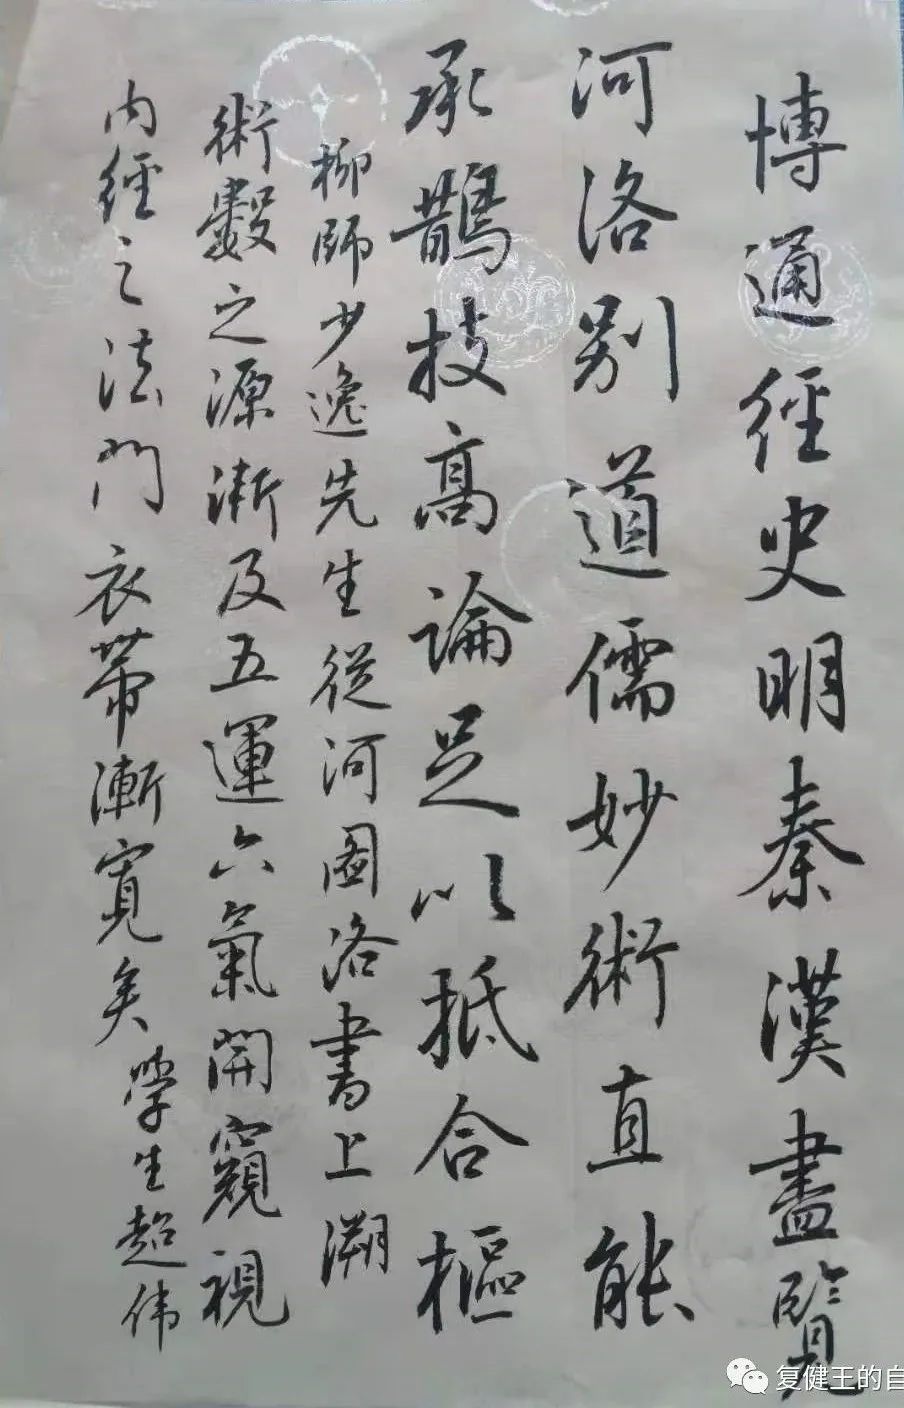 博通經史明秦漢盡覽
河洛別道儒妙術直能
承鵲技高論足以抵合樞
柳師少逸先生從河圖洛書上溯
術數之源漸及五運六氣開窺視
內經之法門衣帶漸寬矣
學生超伟
复健王的自